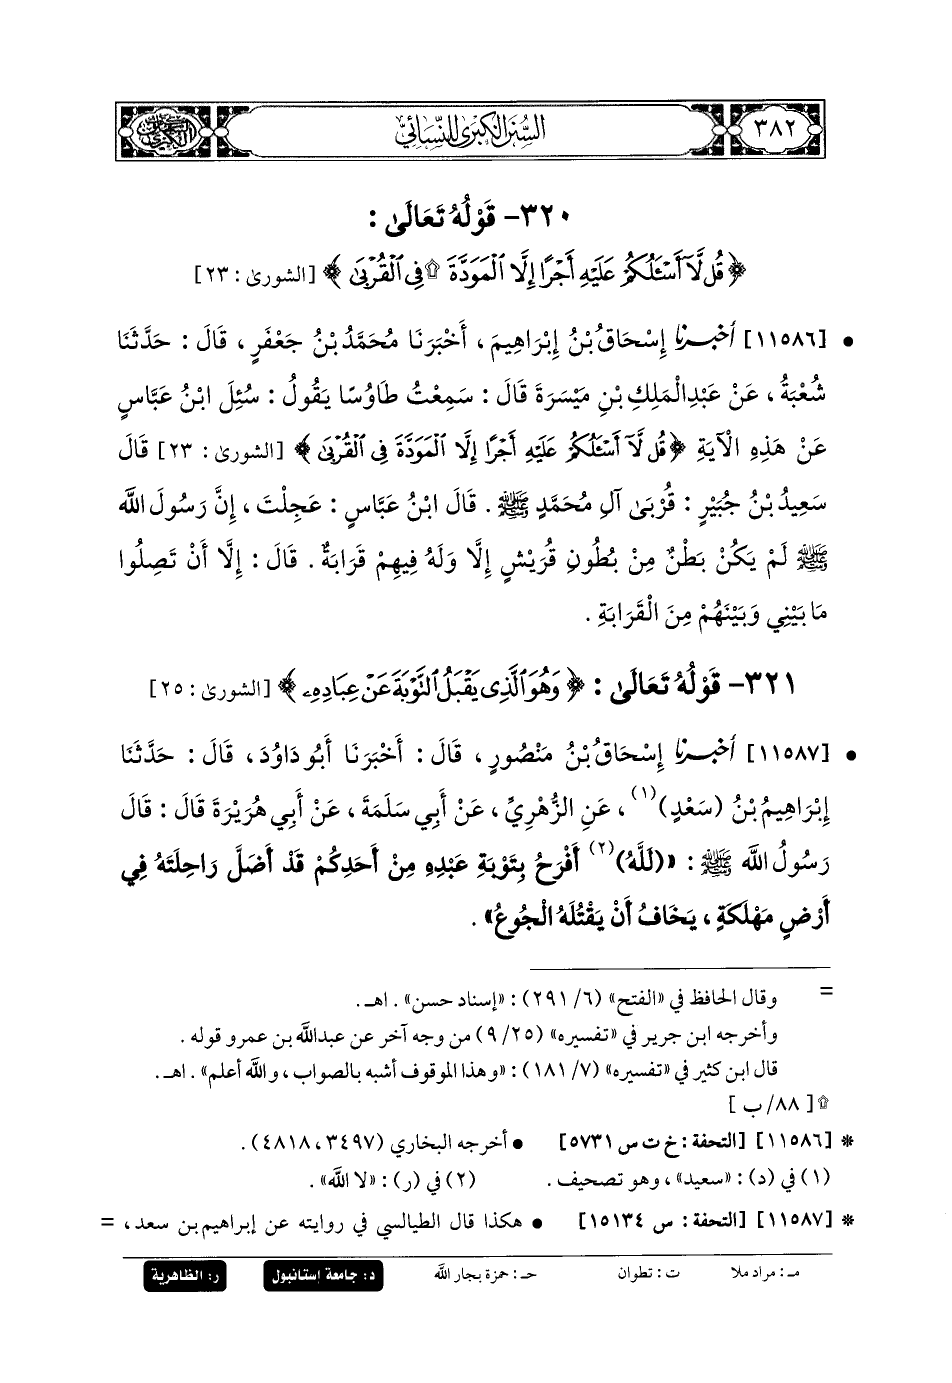 ٣٨٢
السُّنَنُ الكُبْرَى لِلنَّسَائِيِّ
٣٢٠- قَوْلُهُ تَعَالَىٰ :
﴿ قُل لَّآ أَسْـَٔلُكُمْ عَلَيْهِ أَجْرًا إِلَّا ٱلْمَوَدَّةَ ۩ فِى ٱلْقُرْبَىٰ ﴾ [الشورىٰ : ٢٣]
• [١١٥٨٦] أَخْبَرَنَا إِسْحَاقُ بْنُ إِبْرَاهِيمَ ، أَخْبَرَنَا مُحَمَّدُ بْنُ جَعْفَرٍ ، قَالَ : حَدَّثَنَا
شُعْبَةُ ، عَنْ عَبْدِ الْمَلِكِ بْنِ مَيْسَرَةَ قَالَ : سَمِعْتُ طَاوُسًا يَقُولُ : سُئِلَ ابْنُ عَبَّاسٍ
عَنْ هَذِهِ الْآيَةِ ﴿ قُل لَّآ أَسْـَٔلُكُمْ عَلَيْهِ أَجْرًا إِلَّا ٱلْمَوَدَّةَ فِى ٱلْقُرْبَىٰ ﴾ [الشورىٰ : ٢٣] قَالَ
سَعِيدُ بْنُ جُبَيْرٍ : قُرْبَىٰ آلِ مُحَمَّدٍ ﷺ . قَالَ ابْنُ عَبَّاسٍ : عَجِلْتَ ، إِنَّ رَسُولَ اللَّه
ﷺ لَمْ يَكُنْ بَطْنٌ مِنْ بُطُونِ قُرَيْشٍ إِلَّا وَلَهُ فِيهِمْ قَرَابَةٌ . قَالَ : إِلَّا أَنْ تَصِلُوا
مَا بَيْنِي وَبَيْنَهُمْ مِنَ الْقَرَابَةِ .
٣٢١- قَوْلُهُ تَعَالَىٰ : ﴿ وَهُوَ ٱلَّذِى يَقْبَلُ ٱلتَّوْبَةَ عَنْ عِبَادِهِۦ ﴾ [الشورىٰ : ٢٥]
• [١١٥٨٧] أَخْبَرَنَا إِسْحَاقُ بْنُ مَنْصُورٍ ، قَالَ : أَخْبَرَنَا أَبُو دَاوُدَ ، قَالَ : حَدَّثَنَا
إِبْرَاهِيمُ بْنُ (سَعْدٍ)(١) ، عَنِ الزُّهْرِيِّ ، عَنْ أَبِي سَلَمَةَ ، عَنْ أَبِي هُرَيْرَةَ قَالَ : قَالَ
رَسُولُ اللَّه ﷺ : «(لَلَّهُ)(٢) أَفْرَحُ بِتَوْبَةِ عَبْدِهِ مِنْ أَحَدِكُمْ قَدْ أَضَلَّ رَاحِلَتَهُ فِي
أَرْضٍ مَهْلَكَةٍ ، يَخَافُ أَنْ يَقْتُلَهُ الْجُوعُ» .
= وقال الحافظ في «الفتح» (٦/ ٢٩١) : «إسناد حسن» . اهـ .
وأخرجه ابن جرير في «تفسيره» (٢٥/ ٩) من وجه آخر عن عبدالله بن عمرو قوله .
قال ابن كثير في «تفسيره» (٧/ ١٨١) : «وهذا الموقوف أشبه بالصواب ، والله أعلم» . اهـ .
۩ [ ٨٨/ ب ]
* [١١٥٨٦] [التحفة : خ ت س ٥٧٣١] • أخرجه البخاري (٣٤٩٧ ، ٤٨١٨) .
(١) في (د) : «سعيد» ، وهو تصحيف . (٢) في (ر) : «لا الله» .
* [١١٥٨٧] [التحفة : س ١٥١٣٤] • هكذا قال الطيالسي في روايته عن إبراهيم بن سعد ، =
مـ : مراد ملا ت : تطوان حـ : حمزة بجار الله د : جامعة إستانبول ر : الظاهرية